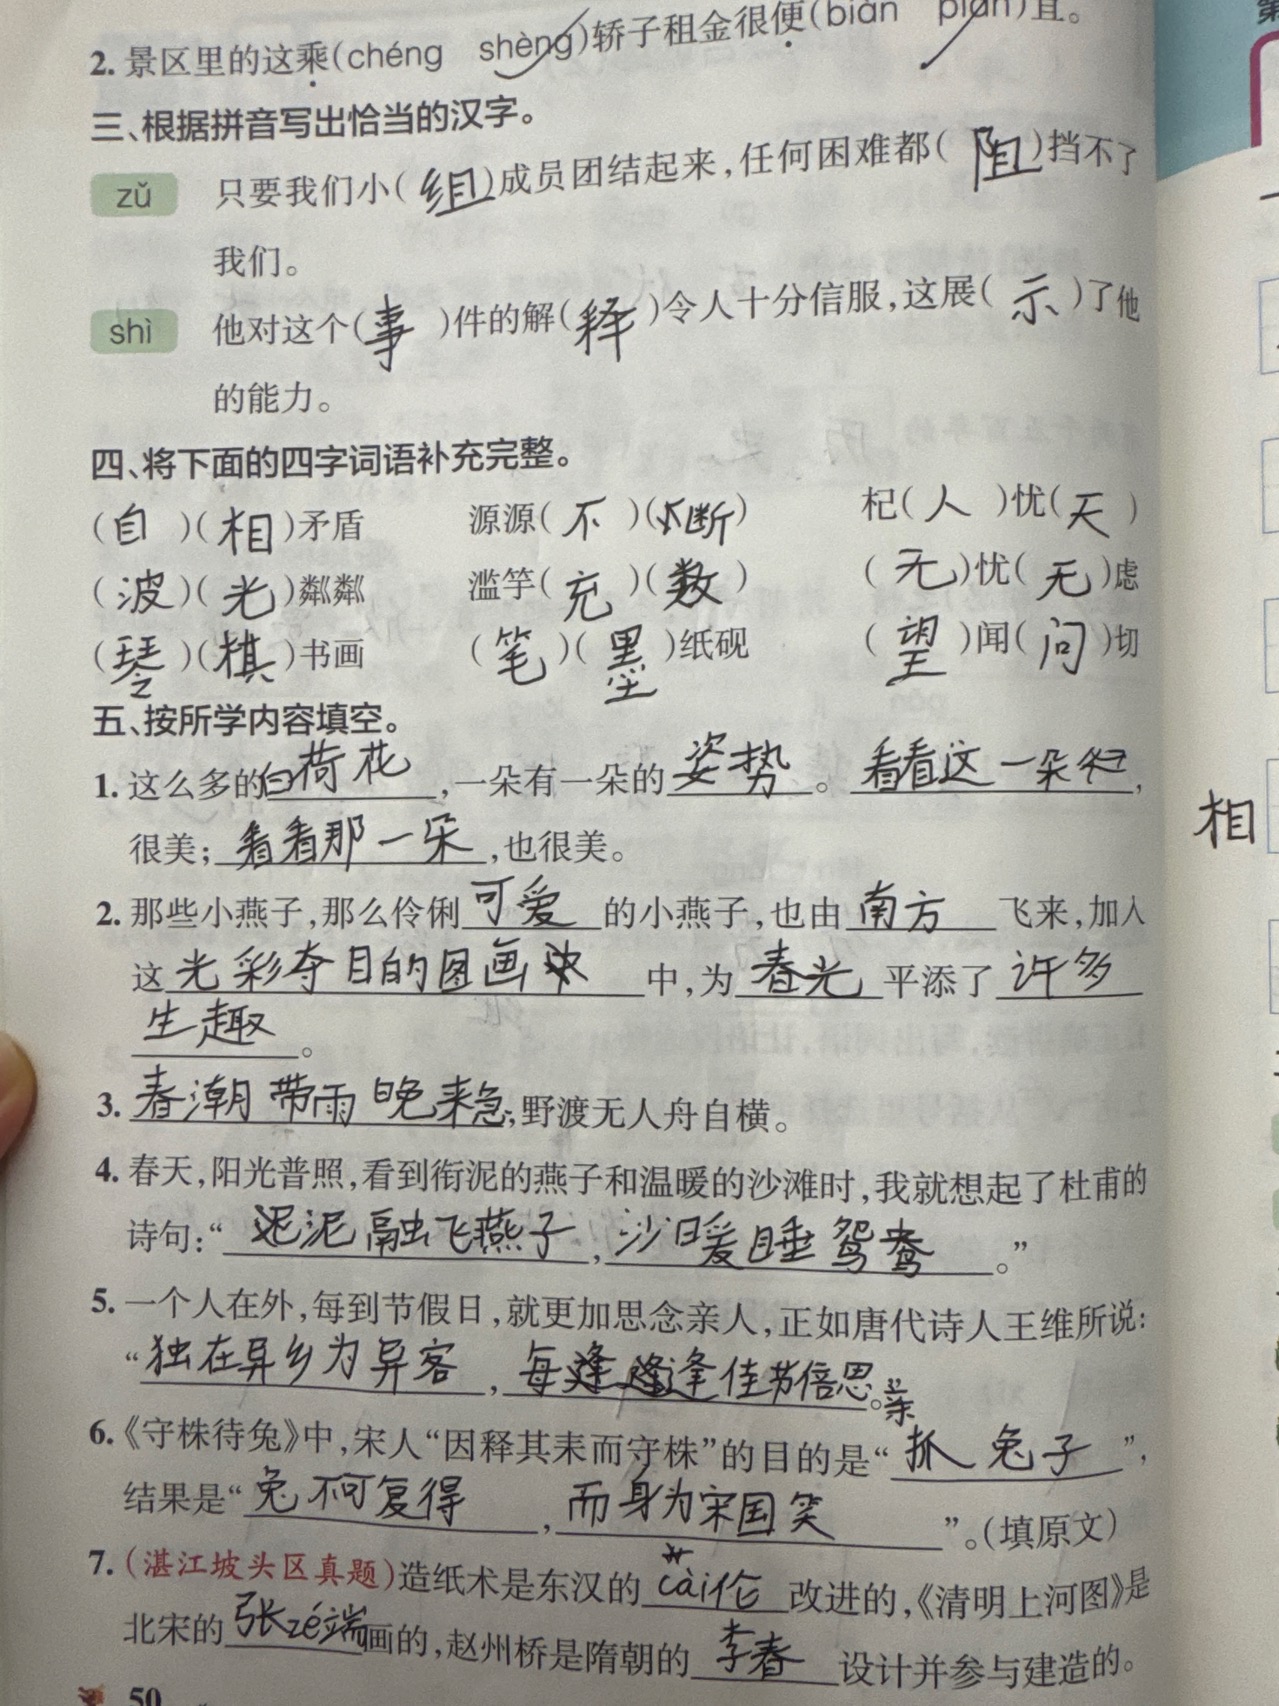 2. 景区里的这乘(chéng shèng)轿子租金很便(biàn pián)宜。
三、根据拼音写出恰当的汉字。
zǔ 只要我们小(组)成员团结起来,任何困难都(阻)挡不了
我们。
shì 他对这个(事)件的解(释)令人十分信服,这展(示)了他
的能力。
四、将下面的四字词语补充完整。
(自)(相)矛盾 源源(不)(断) 杞(人)忧(天)
(波)(光)粼粼 滥竽(充)(数) (无)忧(无)虑
(琴)(棋)书画 (笔)(墨)纸砚 (望)闻(问)切
五、按所学内容填空。
1. 这么多的白荷花,一朵有一朵的姿势。看看这一朵,
相
很美;看看那一朵,也很美。
2. 那些小燕子,那么伶俐可爱的小燕子,也由南方飞来,加入
这光彩夺目的图画中,为春光平添了许多
生趣。
3. 春潮带雨晚来急,野渡无人舟自横。
4. 春天,阳光普照,看到衔泥的燕子和温暖的沙滩时,我就想起了杜甫的
诗句:“泥融飞燕子,沙暖睡鸳鸯。”
5. 一个人在外,每到节假日,就更加思念亲人,正如唐代诗人王维所说:
“独在异乡为异客,每逢佳节倍思亲。”
6.《守株待兔》中,宋人“因释其耒而守株”的目的是“抓兔子”,
结果是“兔不可复得,而身为宋国笑”。(填原文)
7. (湛江坡头区真题)造纸术是东汉的cài伦改进的,《清明上河图》是
北宋的张zé端画的,赵州桥是隋朝的李春设计并参与建造的。
50